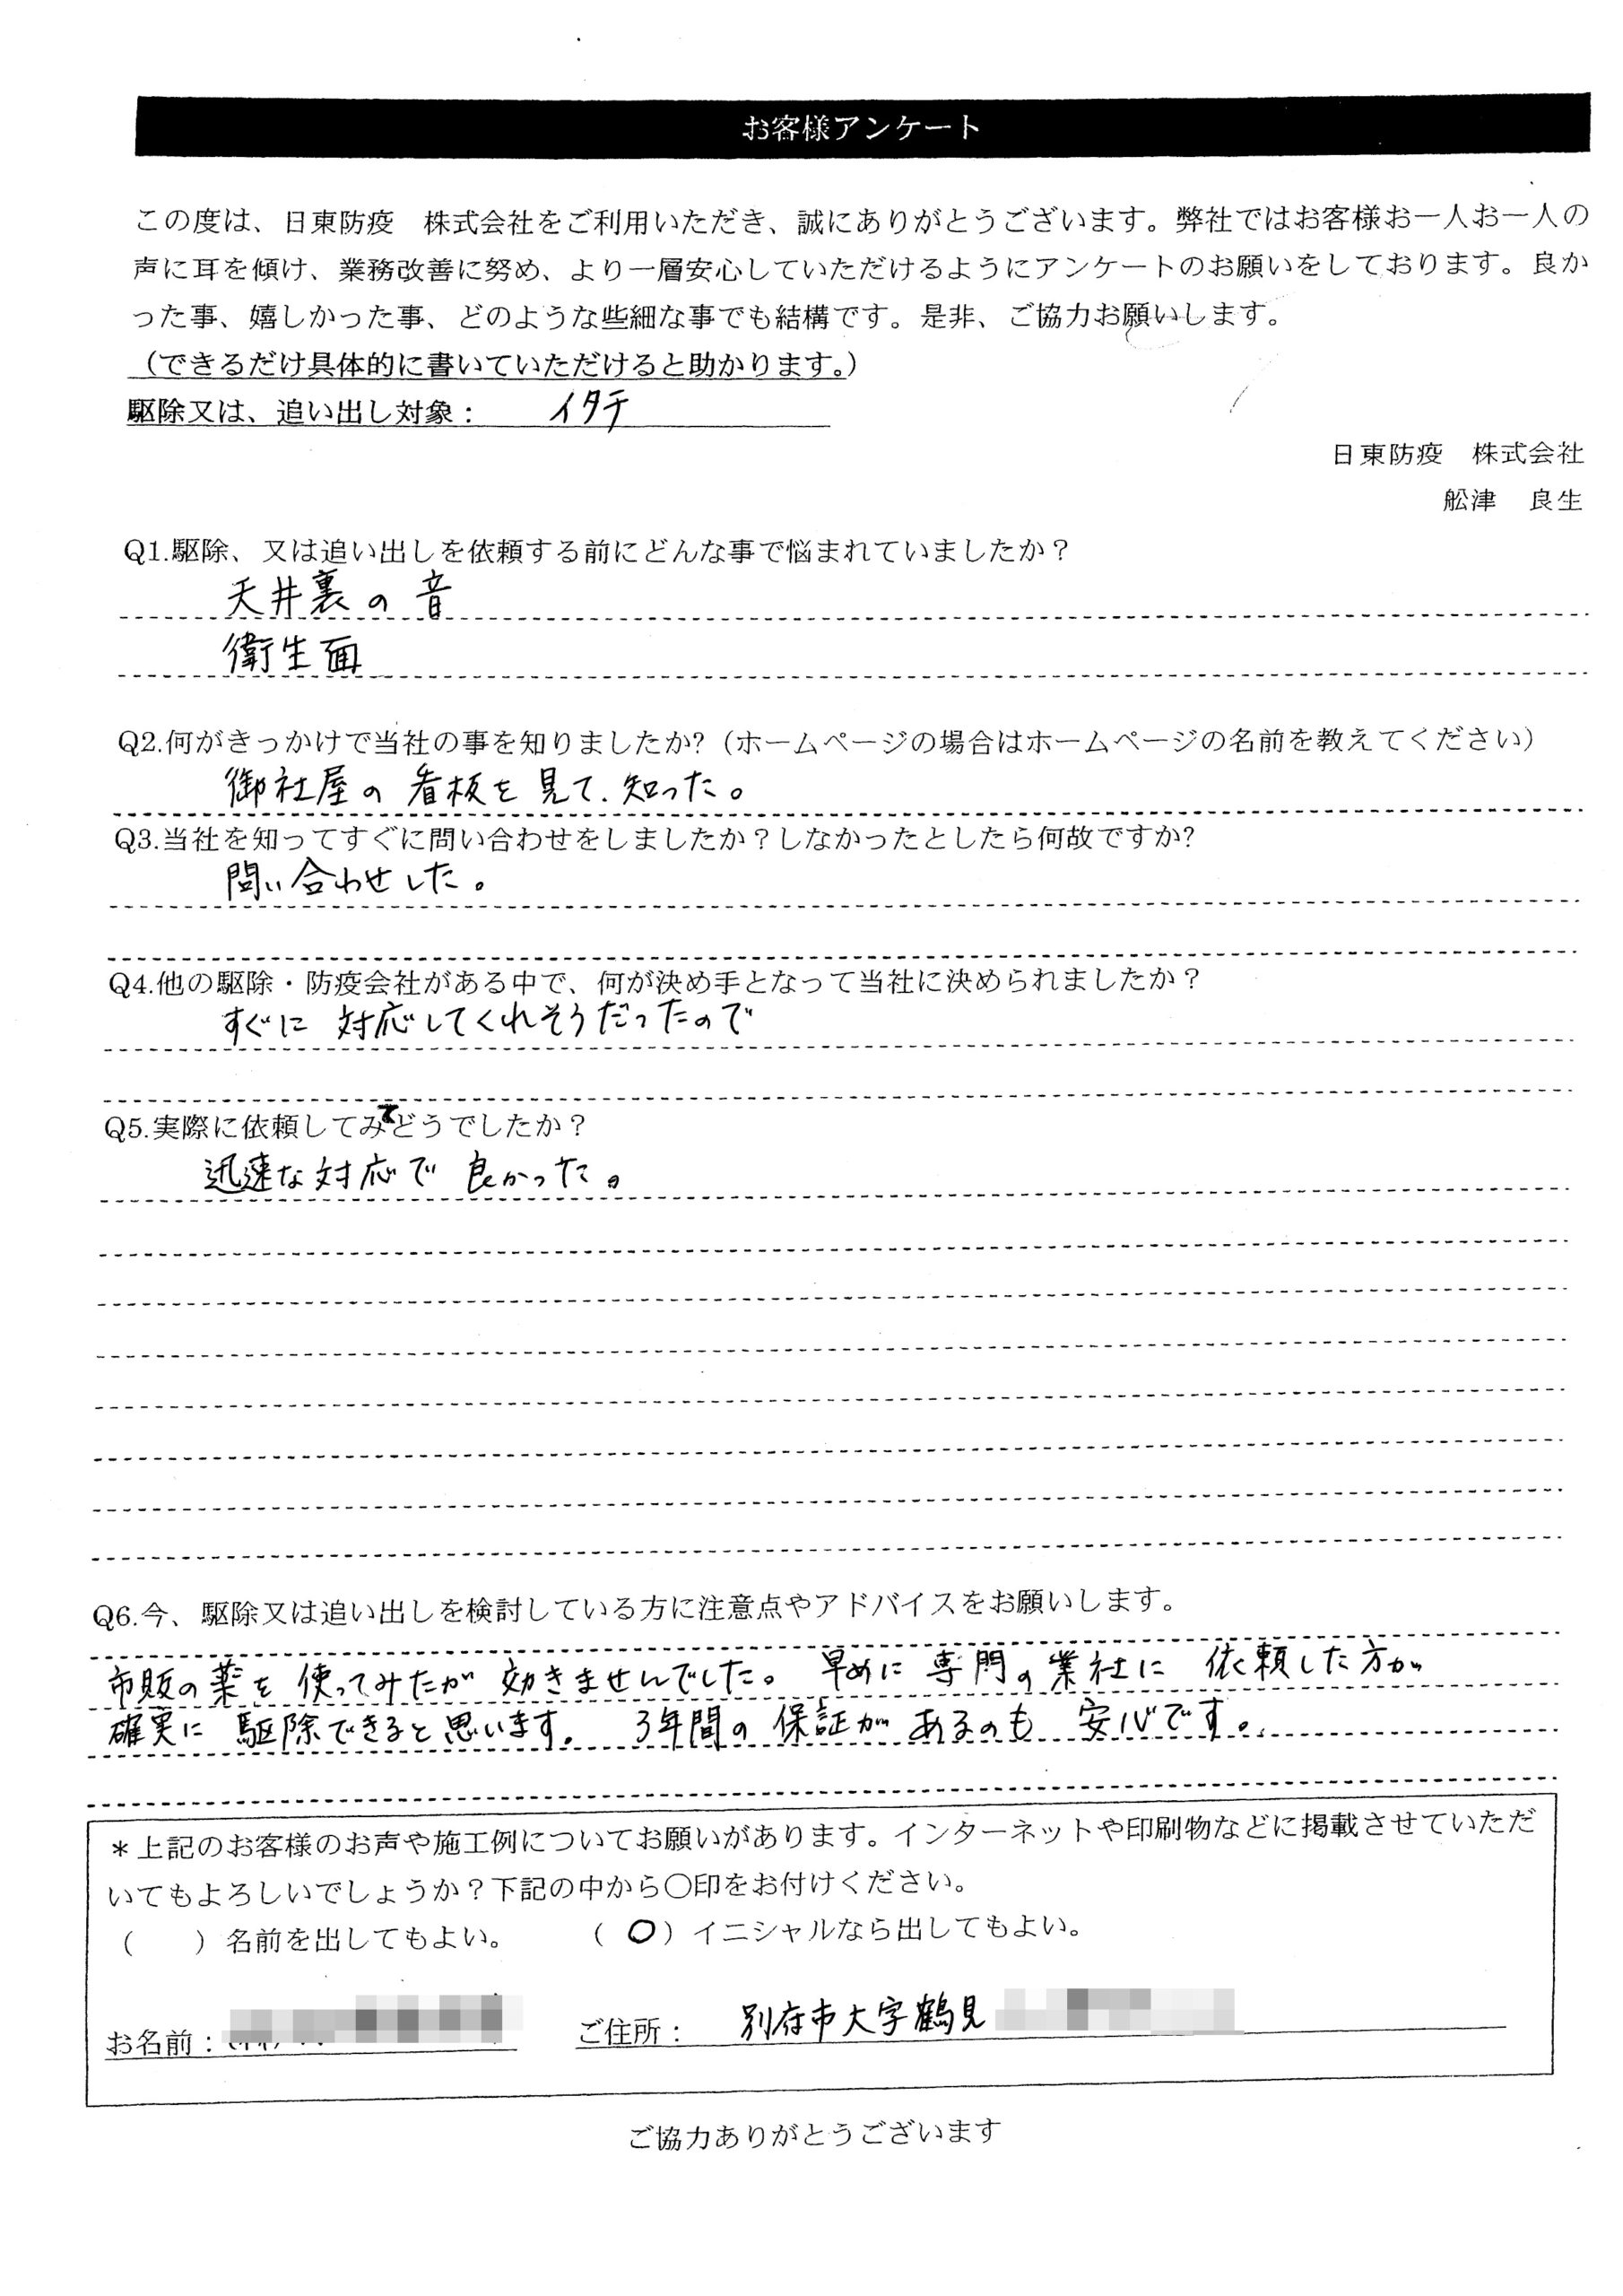 お客様アンケート
この度は、日東防疫　株式会社をご利用いただき、誠にありがとうございます。弊社ではお客様お一人お一人の
声に耳を傾け、業務改善に努め、より一層安心していただけるようにアンケートのお願いをしております。良か
った事、嬉しかった事、どのような些細な事でも結構です。是非、ご協力お願いします。
（できるだけ具体的に書いていただけると助かります。）
駆除又は、追い出し対象：　イタチ
日東防疫　株式会社
舩津　良生
Q1.駆除、又は追い出しを依頼する前にどんな事で悩まれていましたか？
天井裏の音
衛生面
Q2.何がきっかけで当社の事を知りましたか?（ホームページの場合はホームページの名前を教えてください）
御社屋の看板を見て、知った。
Q3.当社を知ってすぐに問い合わせをしましたか？しなかったとしたら何故ですか?
問い合わせした。
Q4.他の駆除・防疫会社がある中で、何が決め手となって当社に決められましたか？
すぐに対応してくれそうだったので
Q5.実際に依頼してみてどうでしたか？
迅速な対応で良かった。
Q6.今、駆除又は追い出しを検討している方に注意点やアドバイスをお願いします。
市販の薬を使ってみたが効きませんでした。早めに専門の業社に依頼した方が
確実に駆除できると思います。3年間の保証があるのも安心です。
＊上記のお客様のお声や施工例についてお願いがあります。インターネットや印刷物などに掲載させていただ
いてもよろしいでしょうか？下記の中から〇印をお付けください。
（　　）名前を出してもよい。　（ 〇 ）イニシャルなら出してもよい。
お名前：　ご住所：　別府市大字鶴見
ご協力ありがとうございます